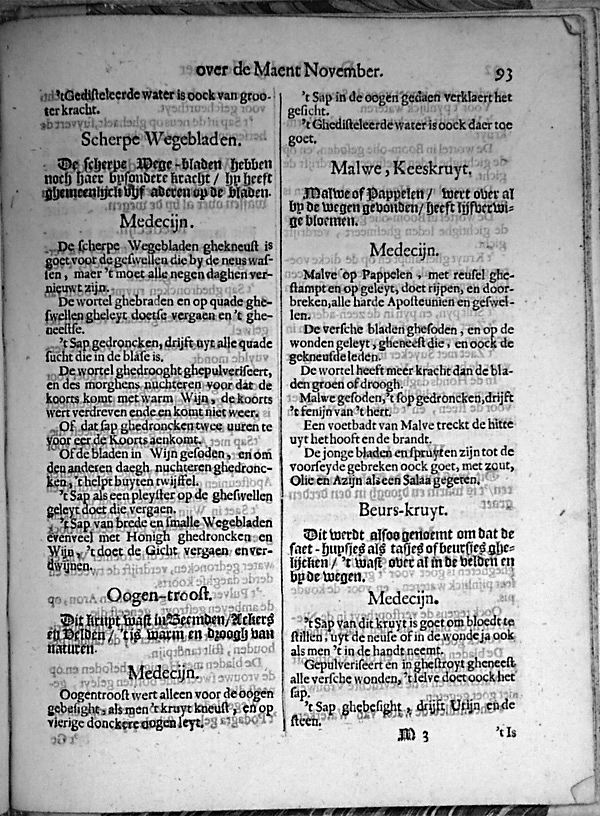 over de Maent November. 93
'tGedisteleerde water is oock van groo-
ter kracht.
Scherpe Wegebladen.
De scherpe Wege-bladen hebben
noch haer bysondere kracht / sy heeft
ghemeenlijck vijf aderen op de bladen.
Medecijn.
De scherpe Wegebladen ghekneust is
goet voor de geswellen die by de neus was-
sen, maer 't moet alle negen daghen ver-
nieuwt zijn.
De wortel ghebraden en op quade ghe-
swellen gheleyt doetse vergaen en 't ghe-
neestse.
't Sap gedroncken, drijft uyt alle quade
sucht die in de blase is.
De wortel ghedrooght ghepulveriseert,
en des morghens nuchteren voor dat de
koorts komt met warm Wijn, de koorts
wert verdreven ende en komt niet weer.
Of dat sap ghedroncken twee uuren te
voor eer de Koorts aenkomt.
Of de bladen in Wijn gesoden, en om
den anderen daegh nuchteren ghedronc-
ken, 't helpt buyten twijffel.
't Sap als een pleyster op de gheswellen
geleyt doet die vergaen.
't Sap van brede en smalle Wegebladen
evenveel met Honigh ghedroncken en
Wijn, 't doet de Gicht vergaen en ver-
dwijnen.
Oogen-troost.
Dit kruyt wast in Beemden / Ackers
en Velden / 't is warm en droogh van
naturen.
Medecijn.
Oogentroost wert alleen voor de oogen
gebesight, als men 't kruyt kneust, en op
vierige donckere oogen leyt.
't Sap in de oogen gedaen verklaert het
gesicht.
't Ghedisteleerde water is oock daer toe
goet.
Malwe, Keeskruyt.
Malwe of Pappelen / wert over al
by de wegen gevonden / heeft lijfverwi-
ge bloemen.
Medecijn.
Malve op Pappelen, met reusel ghe-
stampt en op geleyt, doet rijpen, en door-
breken, alle harde Aposteunien en geswel-
len.
De versche bladen ghesoden, en op de
wonden geleyt, gheneest die, en oock de
gekneusde leden.
De wortel heeft meer kracht dan de bla-
den groen of droogh.
Malwe gesoden, 't sop gedroncken, drijft
't fenijn van 't hert.
Een voetbadt van Malve treckt de hitte
uyt het hooft en de brandt.
De jonge bladen en spruyten zijn tot de
voorseyde gebreken oock goet, met zout,
Olie en Azijn als een Salaa gegeten.
Beurs-kruyt.
Dit werdt alsoo genoemt om dat de
saet-huysjes als tasjes of beursjes ghe-
lijcken / 't wast over al in de velden en
by de wegen.
Medecijn.
't Sap van dit kruyt is goet om bloedt te
stillen, uyt de neuse of in de wonde ja ook
als men 't in de handt neemt.
Gepulveriseert en in ghestroyt gheneest
alle versche wonden, 't selve doet oock het
sap.
't Sap ghebesight, drijft Urijn en de
steen.
M 3 't Is